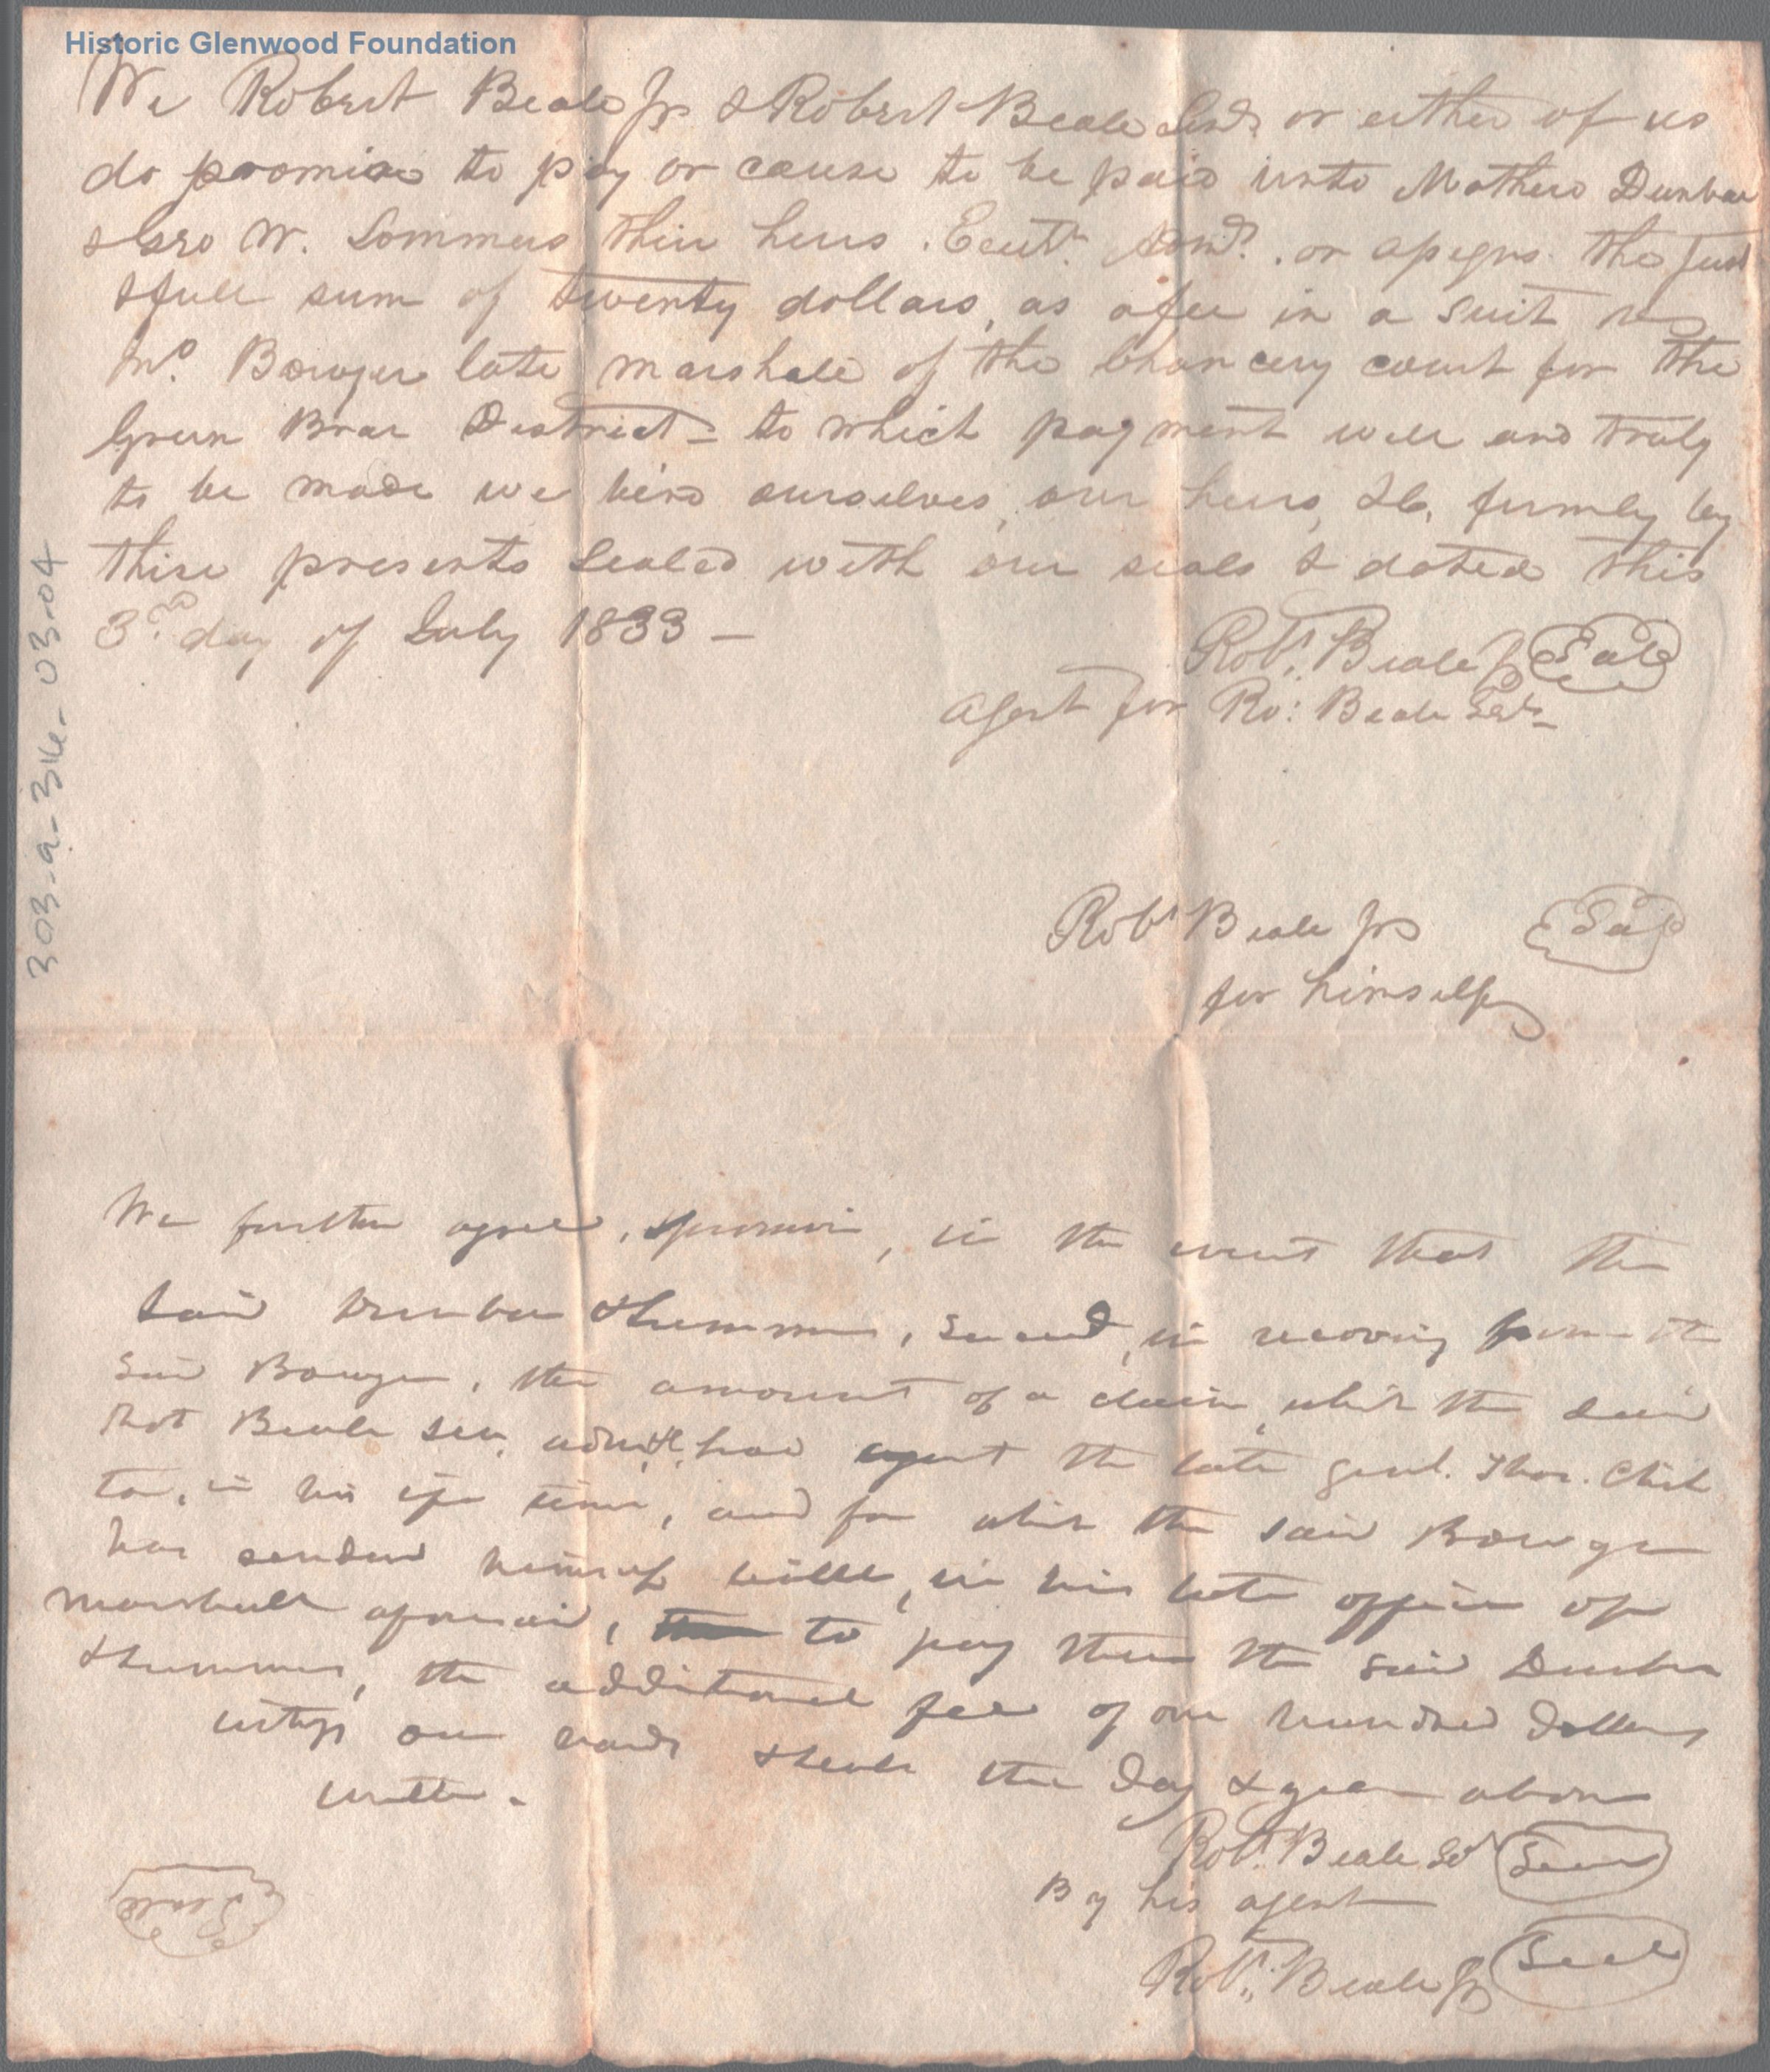 Historic Glenwood Foundation
We Robert Beale Jr & Robert Beale Senr or either of us
do promise to pay or cause to be paid unto Mathew Dunbar
& Geo W. Sommers their heirs . Admr. or assigns the Just
& full sum of twenty dollars, as a fee in a suit vs
Bowyer late marshall of the Chancery court for the
Green Brar District – to which payment well and truly
to be made we bind ourselves, our heirs, &c, firmly by
these presents sealed with our seals & dated this
3rd day of July 1833 –
Robt. Beale Jr Seale
agent for Ro: Beale Senr
Robt Beale Jr Seal
for himself
We further agree, & promise, in the event that the
said Dunbar & Summers, succeed, in recovering from the
said Bowyer, the amount of a claim, which the said
Robt Beale sen. had against the late Genl. Thos. Chil
ton, in his life time, and for which the said Bowyer
has rendered himself liable, in his late office of
marshall aforesaid, to pay them the said Dunbar
& Summers, the additional fee of one hundred Dollars
witness our hands & seals the day & year above
written.
Robt. Beale Sr Seal
By his agent
Robt. Beale Jr Seal
Seale
303-a-316-03-04